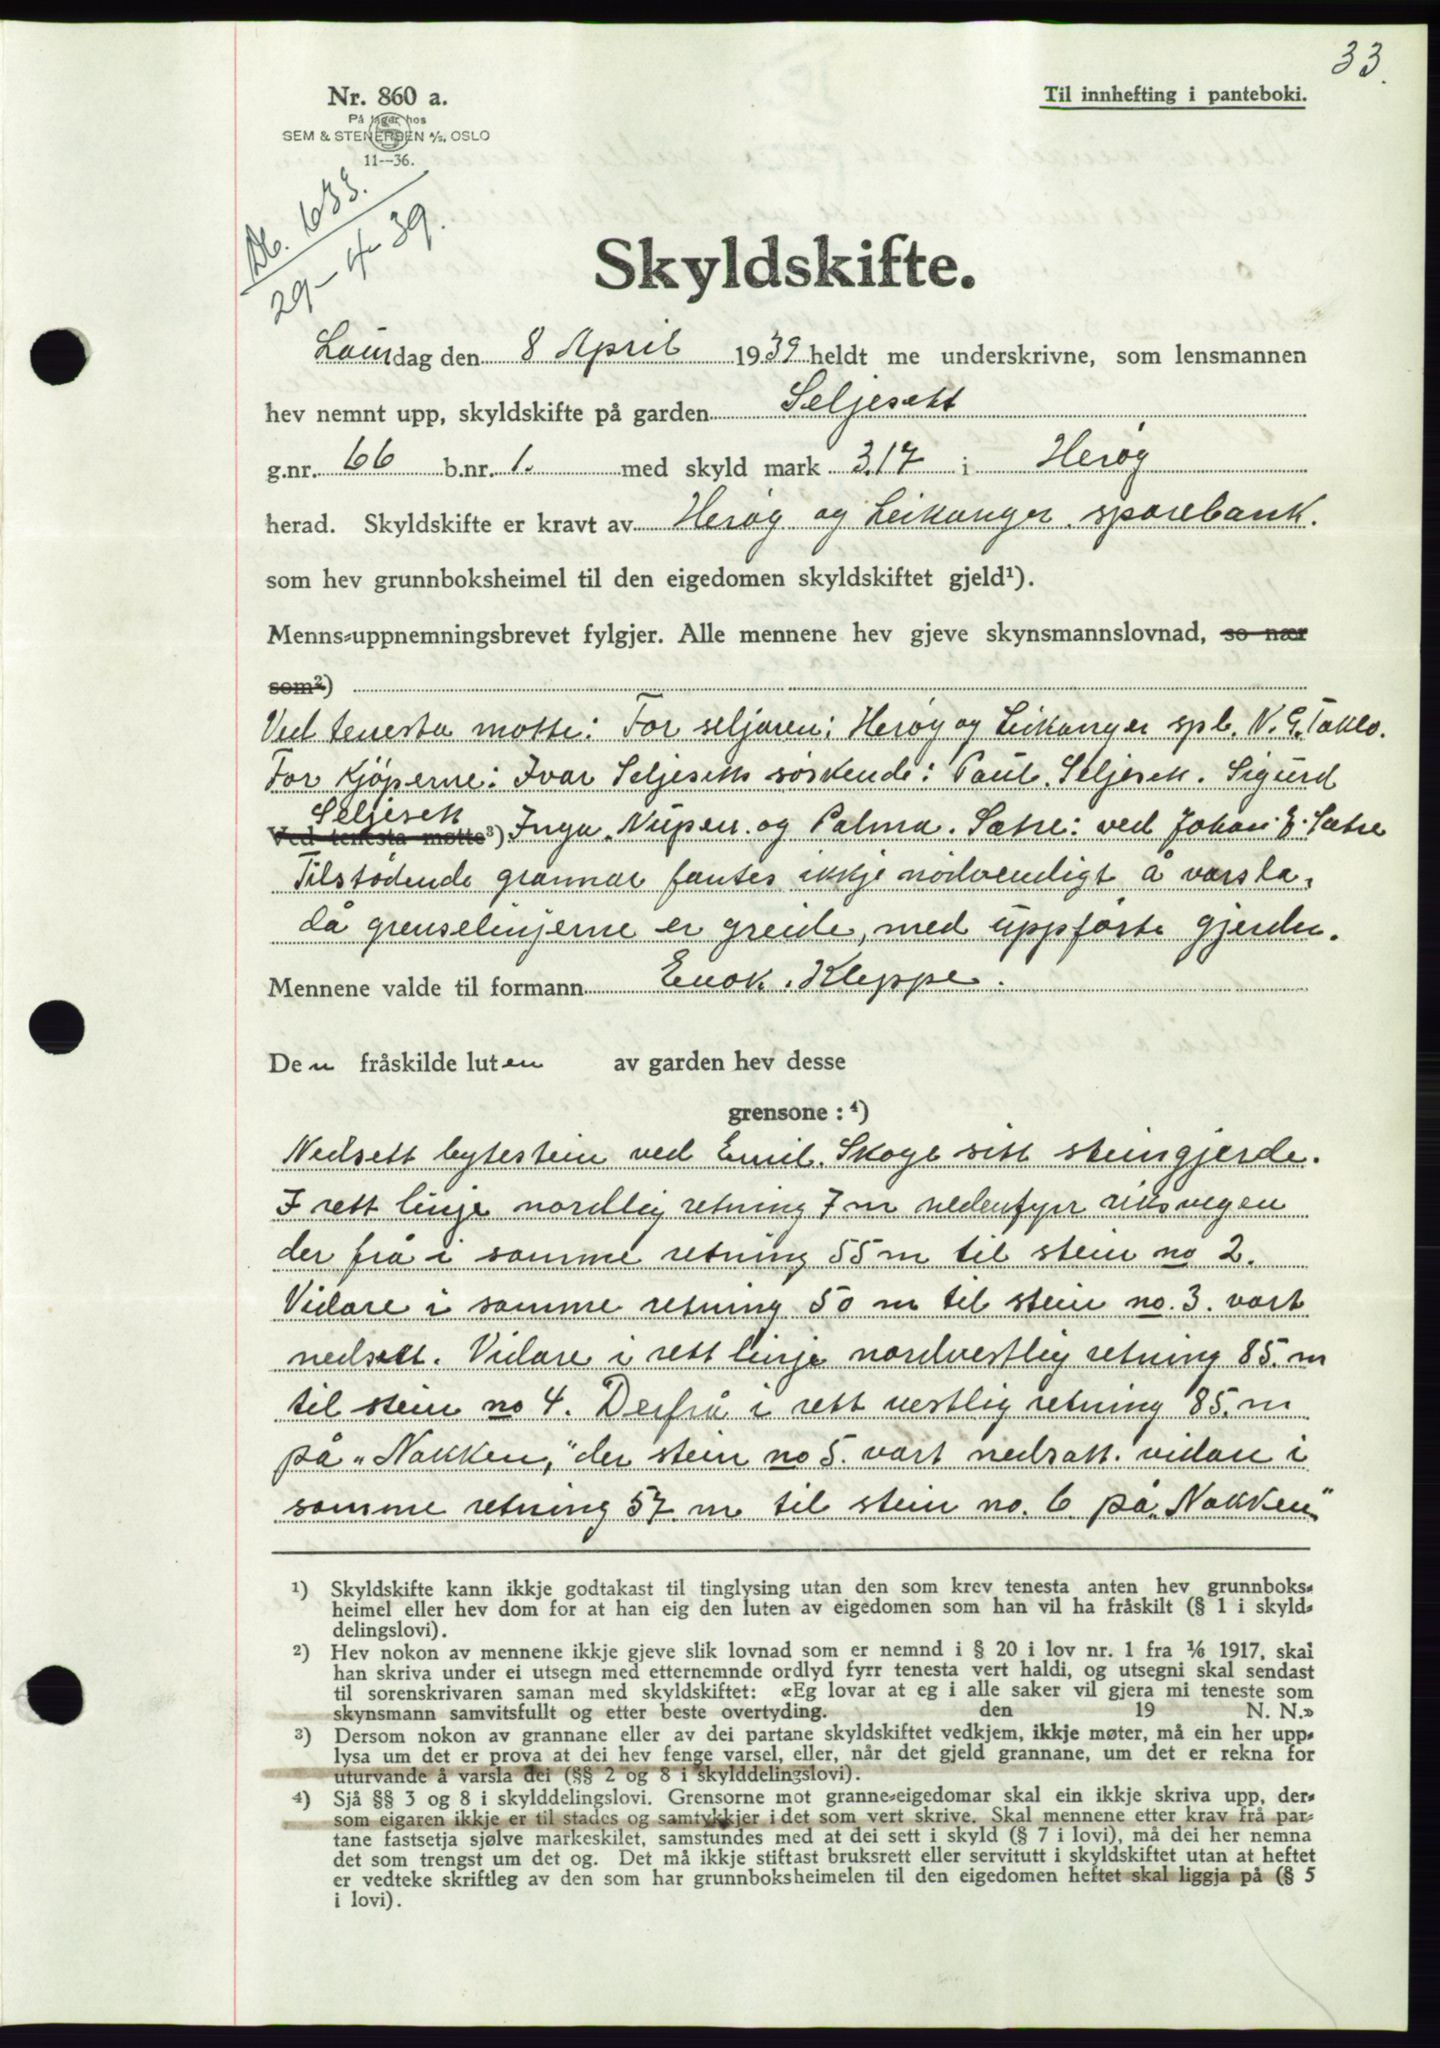 33.
Nr. 860 a.
På lager hos
SEM & STENERSEN A/S, OSLO
11--36.
Til innhefting i panteboki.
Db. 633.
29-4-39.
Skyldskifte.
Laurdag den 8 April 1939 heldt me underskrivne, som lensmannen
hev nemnt upp, skyldskifte på garden Seljesett
g.nr. 66 b.nr. 1. med skyld mark 3.17 i Herøy
herad. Skyldskifte er kravt av Herøy og Leikanger sparebank.
som hev grunnboksheimel til den eigedomen skyldskiftet gjeld¹).
Menns-uppnemningsbrevet fylgjer. Alle mennene hev gjeve skynsmannslovnad, so nær
som²)
Ved tenesta møtte: For seljaren: Herøy og Leikanger spb. N. G. Taklo.
For kjöperne: Ivar Seljesets söskende: Paul. Seljeset. Sigurd
Seljeset
Ved tenesta møtte³) Inga. Nupen. og Palma. Sætre: ved Johan E. Sætre
Tilstödende grannar fantes ikkje nödvendigt å varsla,
då grenselinjerne er greide, med uppförte gjerder.
Mennene valde til formann Enok. Kleppe.
Den fråskilde luten av garden hev desse
grensone : ⁴)
Nedsett bytestein ved Emil. Skoge sitt steingjerde.
I rett linje nordlig retning 7 m nedenfyrr riksvegen
der frå i samme retning 55 m til stein no 2.
Vidare i samme retning 50 m til stein no. 3. vart
nedsett. Vidare i rett linje nordvestlig retning 85. m
til stein no 4. Derfrå i rett vestlig retning 85. m
på „Nakken," der stein no 5. vart nedsatt. vidare i
samme retning 57. m til stein no. 6 på „Nakken"
¹) Skyldskifte kann ikkje godtakast til tinglysing utan den som krev tenesta anten hev grunnboks-
heimel eller hev dom for at han eig den luten av eigedomen som han vil ha fråskilt (§ 1 i skyld-
delingslovi).
²) Hev nokon av mennene ikkje gjeve slik lovnad som er nemnd i § 20 i lov nr. 1 fra 1/6 1917, skal
han skriva under ei utsegn med etternemnde ordlyd fyrr tenesta vert haldi, og utsegni skal sendast
til sorenskrivaren saman med skyldskiftet: «Eg lovar at eg i alle saker vil gjera mi teneste som
skynsmann samvitsfullt og etter beste overtyding. den 19 N. N.»
³) Dersom nokon av grannane eller av dei partane skyldskiftet vedkjem, ikkje møter, må ein her upp-
lysa um det er prova at dei hev fenge varsel, eller, når det gjeld grannane, um det er rekna for
uturvande å varsla dei (§§ 2 og 8 i skylddelingslovi).
⁴) Sjå §§ 3 og 8 i skylddelingslovi. Grensorne mot granne-eigedomar skal ein ikkje skriva upp, der-
som eigaren ikkje er til stades og samtykkjer i det som vert skrive. Skal mennene etter krav frå par-
tane fastsetja sjølve markeskilet, samstundes med at dei sett i skyld (§ 7 i lovi), må dei her nemna
det som trengst um det og. Det må ikkje stiftast bruksrett eller servitutt i skyldskiftet utan at heftet
er vedteke skriftleg av den som har grunnboksheimelen til den eigedomen heftet skal liggja på (§ 5
i lovi).